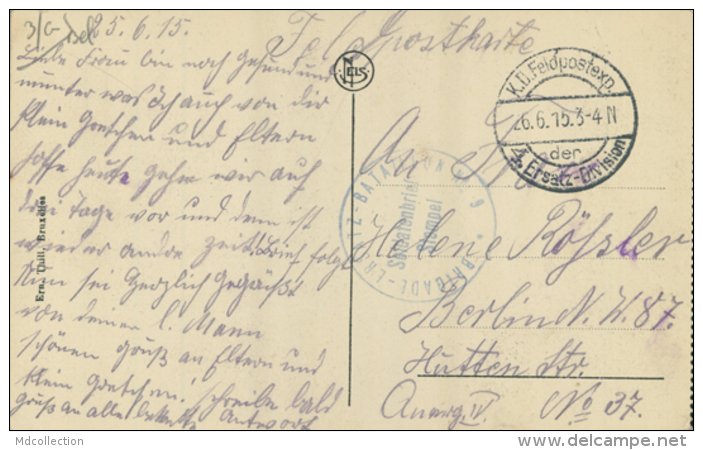 25.6.15.
Liebe Frau bin noch gesund und
munter was ich auch von dir
klein Gretchen und Eltern
hoffe heute gehen wir auf
drei Tage vor und dann ist
wieder andre Zeit Brief folgt
Nun sei Herzlich Gegrüßt
von deiner l. Mann
schönen Gruß an Eltern und
klein Gretchen! schreibe bald
Gruß an alle Antwort
Ern. Thill, Bruxelles
NELS
Feldpostkarte
K.D. Feldpostexp.
26.6.15. 3-4 N
der
4. Ersatz-Division
BRIGADE-ERSATZ-BATAILLON No 9
Soldatenbrief
Stempel
An Frau
Helene Rößler
Berlin N.W. 87.
Hutten Str.
No 37.
Mdcollection
delcampe.net